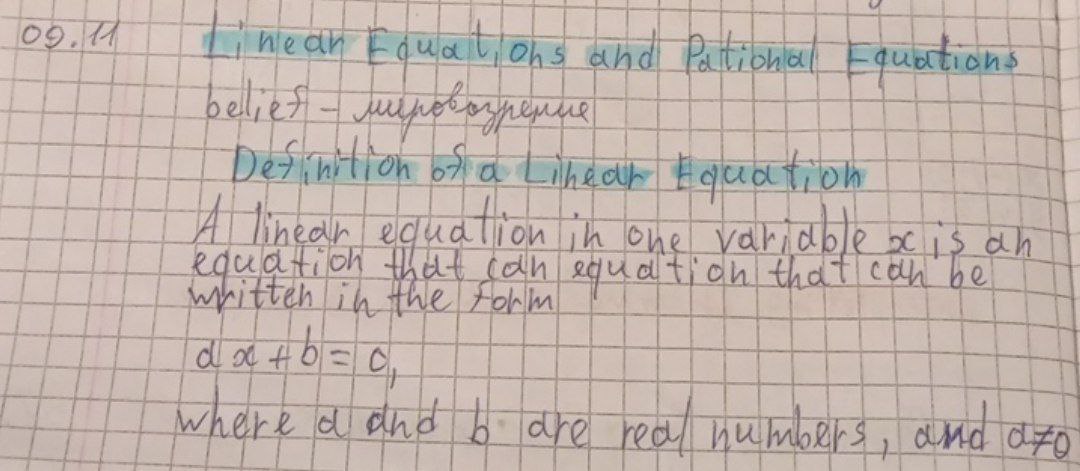 09.11 Linear Equations and Rational Equations
belief - мировозрение
Definition of a Linear Equation
A linear equation in one variable x is an
equation that can equation that can be
written in the form
ax + b = 0,
where a and b are real numbers, and a≠0